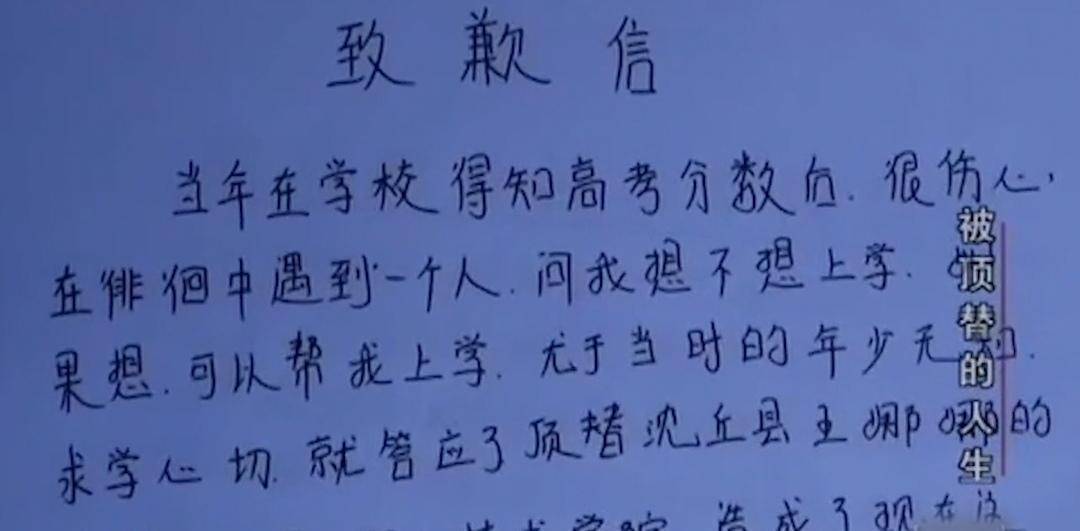 致歉信
当年在学校得知高考分数后.很伤心,
在徘徊中遇到一个人.问我想不想上学.
果想.可以帮我上学.尤于当时的年少无知.
求学心切.就答应了顶替沈丘县王娜娜的
学院 造成了现在这
被顶替的人生